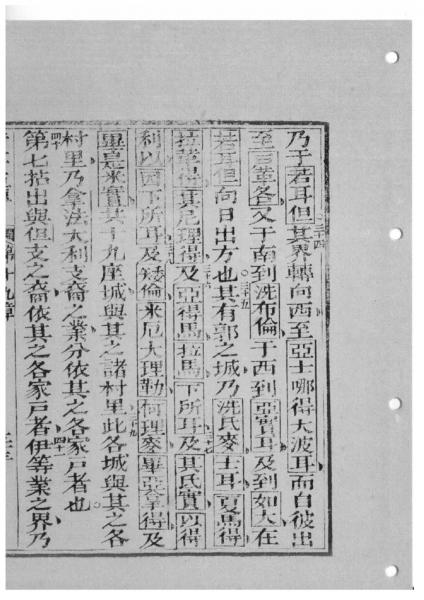 乃于若耳但其界轉向西至亞士哪得大波耳而自彼出
至百革各又于南到洗布倫于西到亞實耳及到如大在
若耳但向日出方也其有郭之城乃洗氏麥士耳夏馬得
拉革得其尼理得及亞得馬拉馬下所耳及其氏實以得
利以因下所耳及矮倫來厄大理勒何理麥畢亞拿得及
畢是米實其十九座城與其之諸村里此各城與其之各
村里乃拿法大利支裔之業分依其之各家戶者也
第七拈出與但支之裔依其之各家戶者伊等業之界乃
第十九章